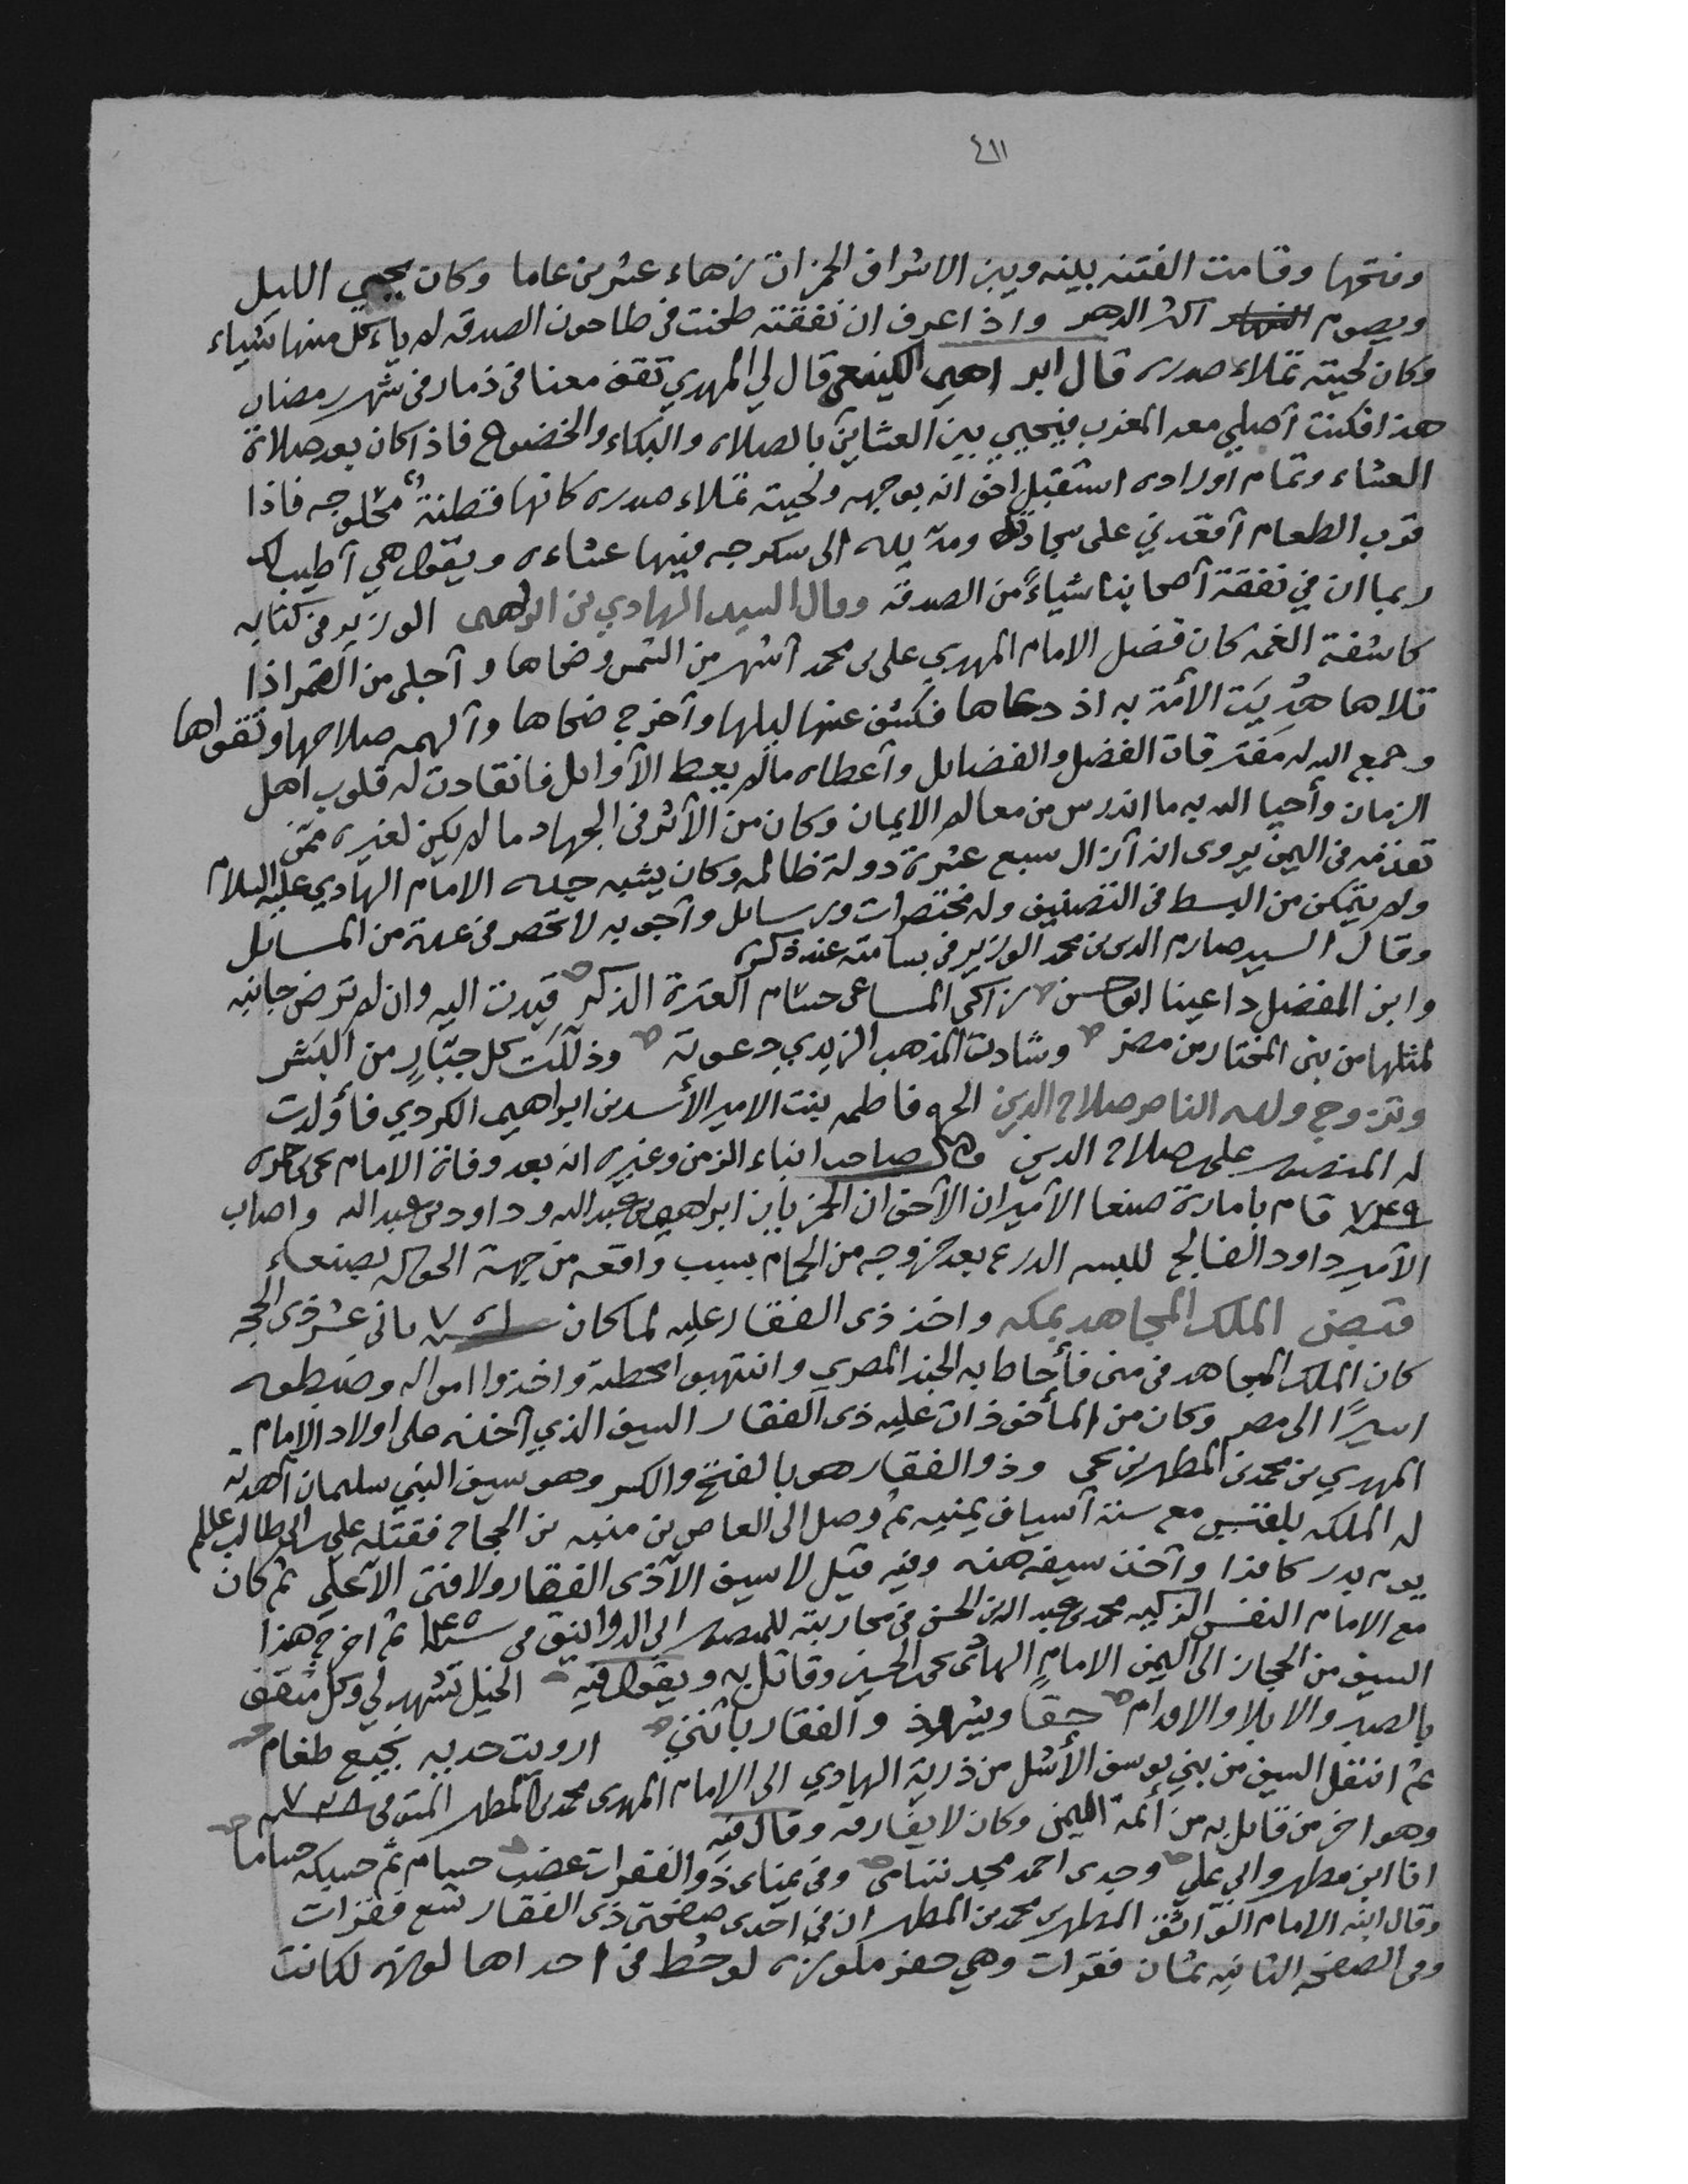 ٤١١
وفتحها وقامت الفتنه بينه وبين الاشراف الحمزات زهاء عشرين عاما وكان يحيي الليل
ويصوم اكثر الدهر واذا عرف ان نفقته طحنت في طاحون الصدقه لم ياءكل منها شياء
وكان لحيته تملاء صدره قال ابراهيم الكينعي قال لي المهدي تقف معنا في ذمار في شهر رمضان
هذا فكنت أصلي معه المغرب فيحيي بين العشاين بالصلاه والبكاء والخضوع فاذا كان بعد صلاة
العشاء وتمام أوراده استقبل اخوانه بوجهه ولحيته تملاء صدره كانها قطنةٌ محلوجه فاذا
قرب الطعام أقعدني على سجادته ومدّ يده الى سكرجه فيها عشاءه ويقول هي أطيب لك
ربما ان في نفقة أصحابنا شياءً من الصدقه وقال السيد الهادي بن ابراهيم الوزير في كتابه
كاشفة الغمه كان فضل الامام المهدي علي بن محمد أشهر من الشمس وضحاها و أجلى من القمر اذا
تلاها هُديَت الأمة به اذ دعاها فكشف عنها ليلها وأخرج ضحاها وألهمه صلاحها وتقواها
وجمع الله له مفترقات الفضل والفضايل وأعطاه مالم يعط الأوايل فانقادت له قلوب اهل
الزمان وأحيا الله به ما اندرس من معالم الايمان وكان من الأثر في الجهاد ما لم يكن لغيره ممّن
تقدّمه في اليمن يروى انه أزال سبع عشرة دولة ظالمه وكان يشبه جده الامام الهادي عليه السلام
ولم يتمكن من البسط في التصنيف وله مختصرات ورسايل وأجوبه لا تحصر في عدة من المسايل
وقال السيد صارم الدين بن محمد الوزير في بسامته عند ذكره
وابن المفضل داعينا ابو حسن زاكي المساعي حسام العترة الذكر قيدت اليه وان لم ترض جانبه
لمثلها من بني المختار من مضر وشادت المذهب الزيدي دعوته وذلّلت كل جبّارٍ من البشر
وتزوج ولده الناصر صلاح الدين الحره فاطمه بنت الامير الأسد بن ابراهيم الكردي فأولدت
له المنصور علي بن صلاح الدين وقال صاحب انباء الزمن وغيره انه بعد وفاة الامام يحيى بن حمزه
٧٤٩ قام بامارة صنعا الأميران الأخوان الحمزيان ابراهيم بن عبدالله وداود بن عبدالله واصاب
الأمير داود الفالج للبسه الدرع بعد خروجه من الحمام بسبب واقعه من جهة الحواله بصنعاء
قبض الملك المجاهد بمكه واخذ ذي الفقار عليه لما كان ٧٥١ ثاني عشر ذي الحجه
كان الملك المجاهد في منى فأحاط به الجند المصري وانتهبوا محطته واخذوا امواله وضبطوه
اسيرًا الى مصر وكان من المأخوذات عليه ذي الفقار السيف الذي أخذه على اولاد الامام
المهدي بن محمد بن المطهر بن يحيى وذو الفقار هو بالفتح والكسر وهو سيف النبي سليمان أهدته
له الملكه بلقيس مع ستة أسياف يمنيه ثم وصل الى العاص بن منبه بن الحجاج فقتله علي بن ابي طالب
يوم بدر كافرا وأخذ سيفه هذه وفيه قيل لا سيف الا ذى الفقار ولا فتى الا علي ثم كان
مع الامام النفس الزكيه محمد بن عبدالله بن الحسن في محاربته للمنصور ابي الدوانيق في ١٤٥ ثم اخرج هذا
السيف من الحجاز الى اليمن الامام الهادي يحيى بن الحسين وقاتل به ويقول فيه الخيل تشهد لي وكل مثقف
بالصبر والابلا والاقدام حقًا ويشهد ذو الفقار بأنني ارويت حديه نجيع طغام
ثم انتقل السيف من بني يوسف الأشل من ذرية الهادي الى الامام المهدي محمد بن المطهر المتوفى ٧٢٨
وهو اخر من قاتل به من أئمة اليمن وكان لا يفارقه وقال فيه
انا ابن مطهر وابي علي وجدى احمد مجد تنامى وفي يمناى ذو الفقرات عضب حسام ثم حسبكه حساما
وقال ابنه الامام الواثق المطهر بن محمد بن المطهر ان في احدى صفحتي ذى الفقار تسع فقرات
وفي الصفحه الثانيه ثمان فقرات وهي حفر ملوزه لو حُط في احداها لوزه لكانت